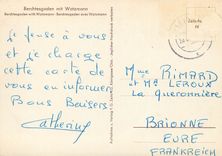 Berchtesgaden mit Watzmann
Berchtesgaden with Watzmann · Berchtesgaden avec Watzmann
Je pense à vous
et je charge
cette carte de
vous en informer
Bons Baisers
Catherine
Mme RIMARD
et Me LEROUX
La Queronnière
BRIONNE
EURE
FRANKREICH